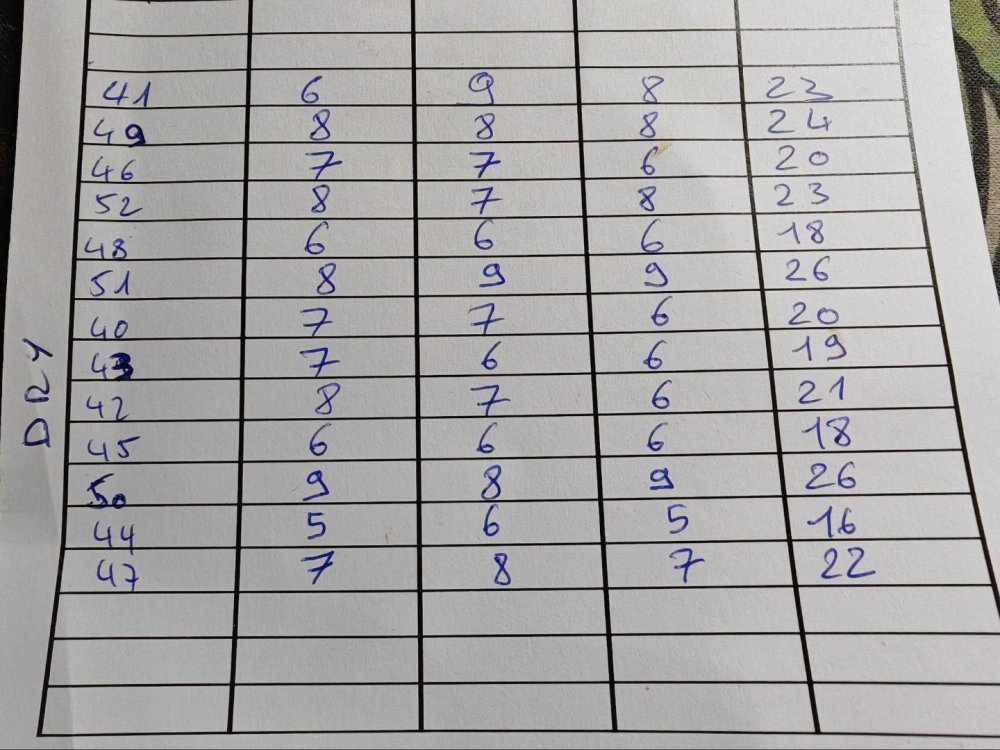 41 6 9 8 23
49 8 8 8 24
46 7 7 6 20
52 8 7 8 23
48 6 6 6 18
51 8 9 9 26
40 7 7 6 20
43 7 6 6 19
42 8 7 6 21
45 6 6 6 18
50 9 8 9 26
44 5 6 5 16
47 7 8 7 22
DRY